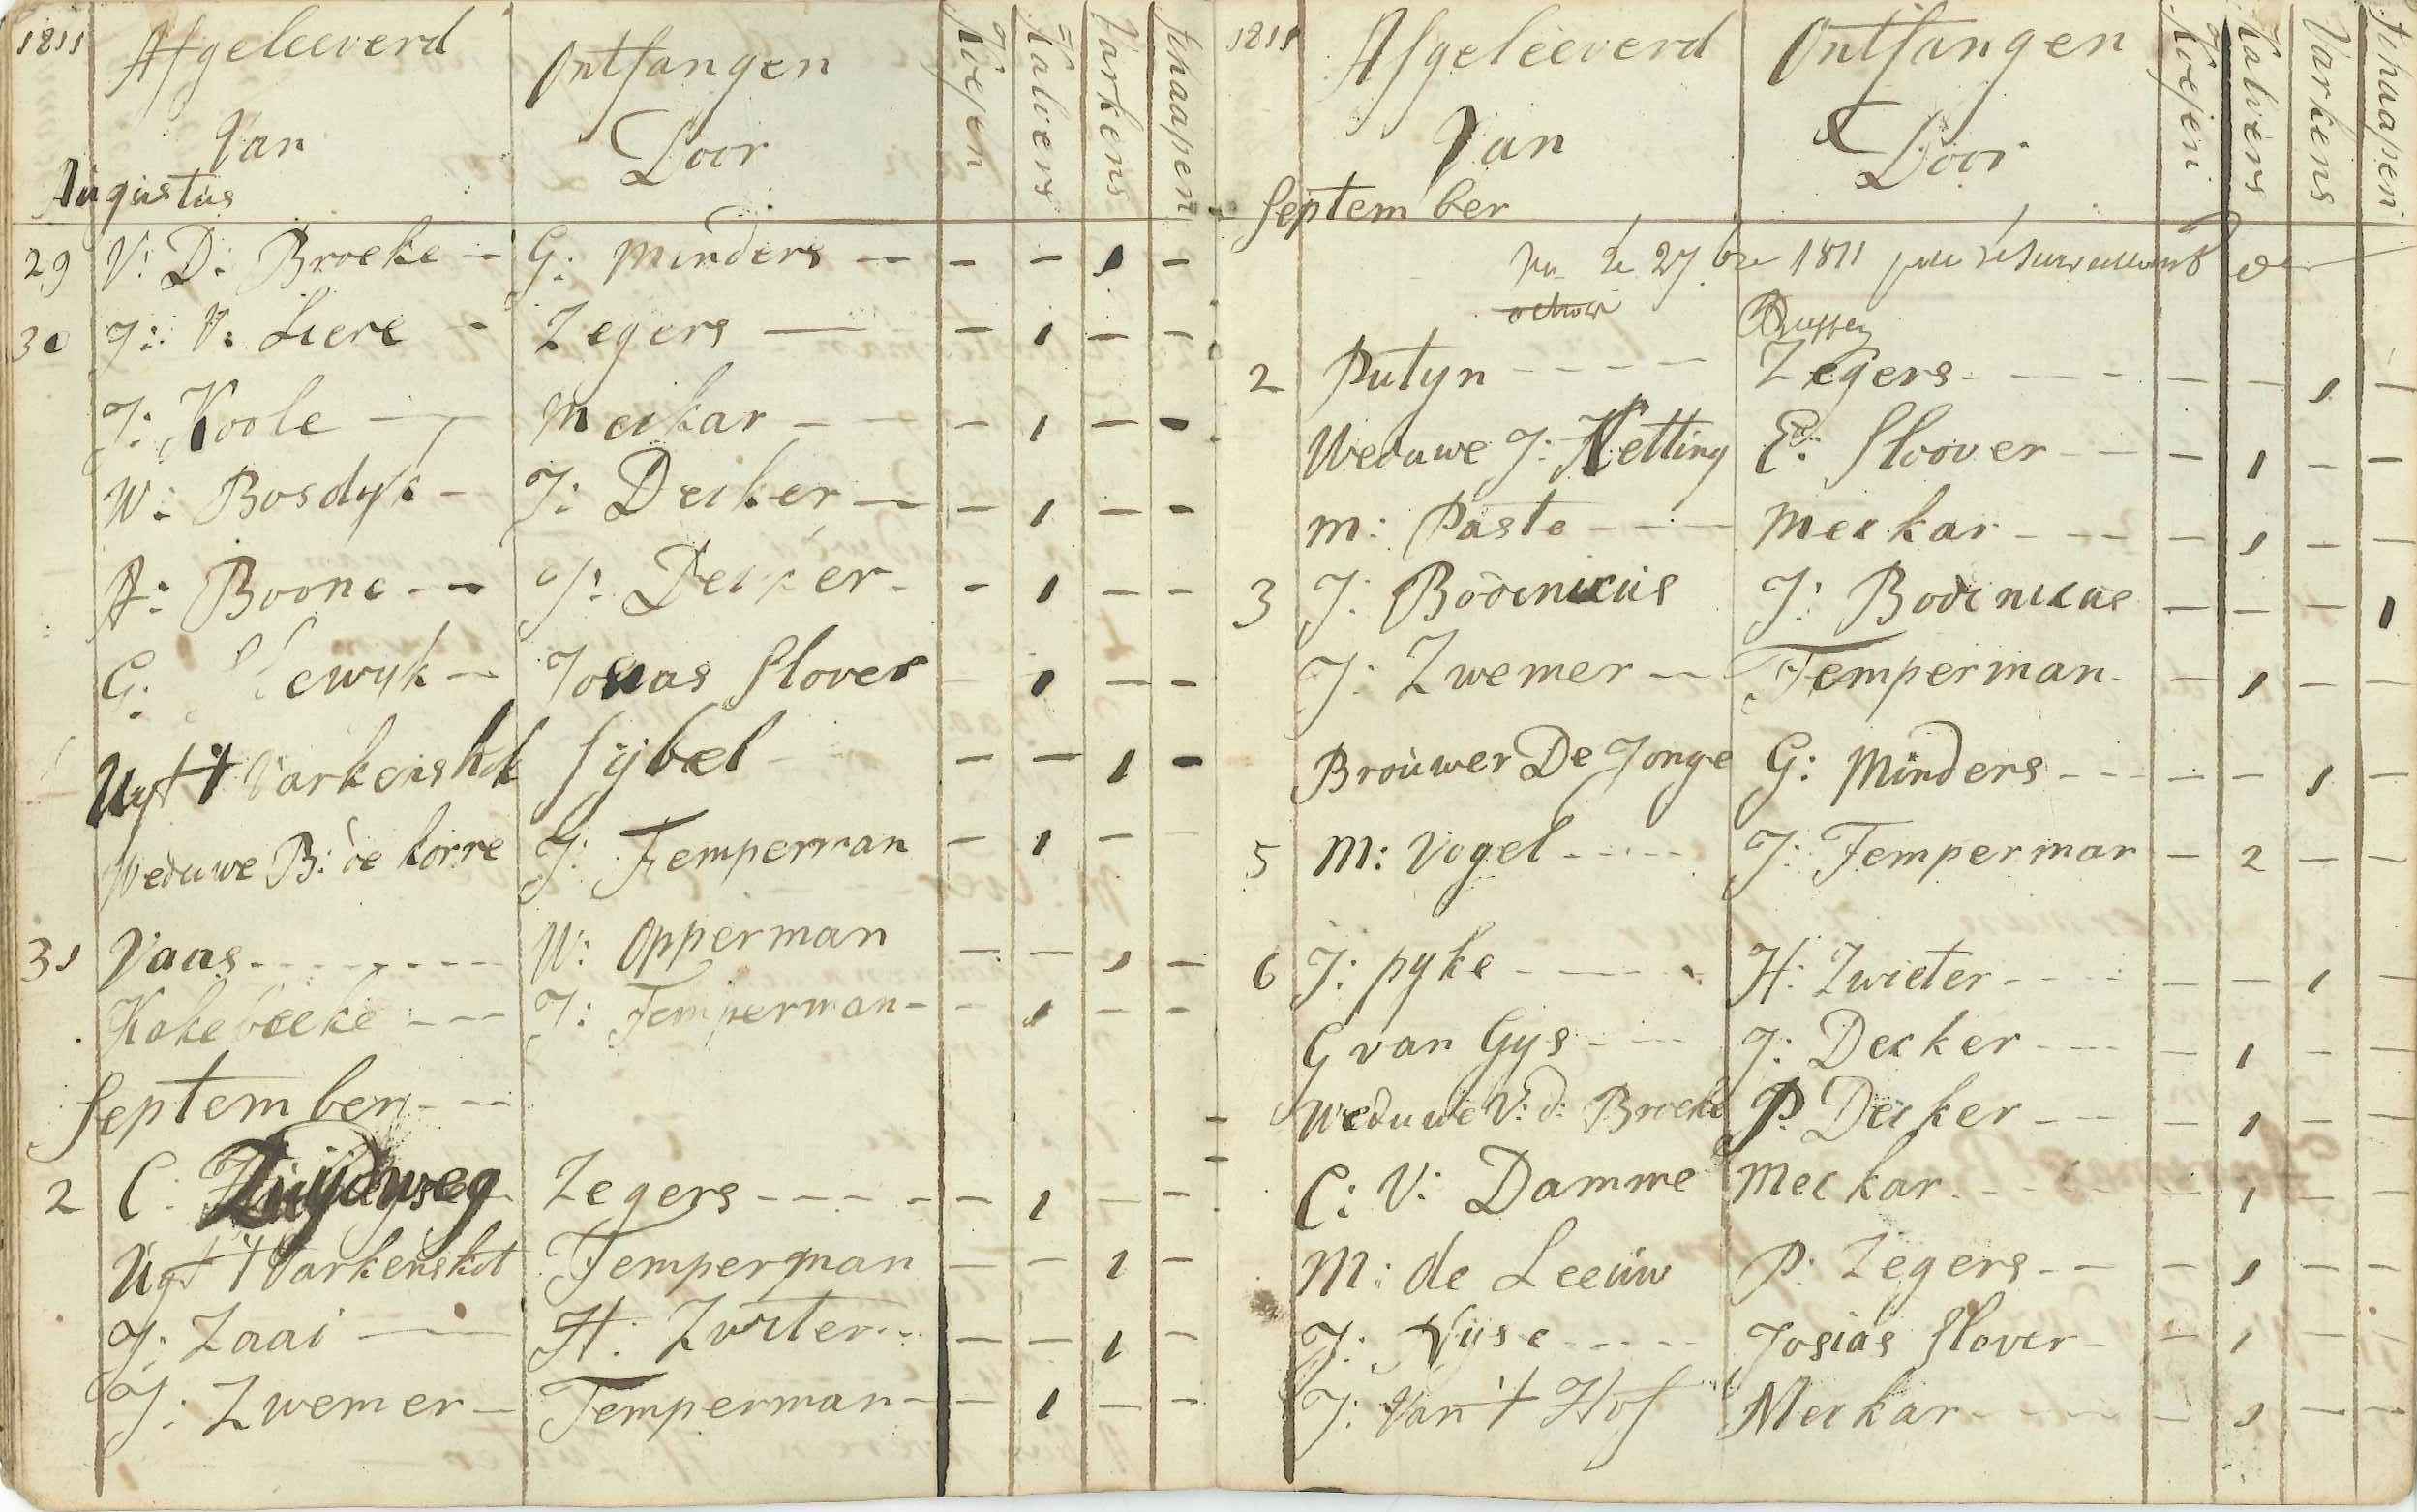 1811 Afgeleeverd Ontfangen Koejen of Kalvers Varkens Schaapen
Van Door
Augustus
29 V: D: Broeke - G: Minders - - - 1 -
30 J: V: Liere - Zegers - - 1 - -
J: Koole - Meckar - - 1 - -
W: Bosdyk - J: Decker - - 1 - -
A: Boone - - J: Decker - - 1 - -
G: Josias Slover - 1 - -
Uyt 't Varkenshok Sijbel - - 1 -
Weduwe B: de Korre J: Temperman - 1 - -
31 Vaas - - - - W: Opperman - - 1 -
Kakebeeke - - - J: Temperman - - 1 - -
September - -
2 C: Zuijdweg Zegers - - - - 1 - -
Uyt 't Varkenshot Temperman - - 1 -
J: Zaai - H: Zwiter - - 1 -
J: Zwemer - Temperman - - 1 - -
1811 Afgeleeverd Ontfangen Koejen of Kalvers Varkens Schaapen
Van Door
September
27 1811
2 Putyn - - - - Zegers - - - - 1 -
Weduwe J: Ketting E: Sloover - - 1 - -
M: Paste - - - Meckar - - - 1 - -
3 J: Bodinicus J: Bodinicus - - - 1
J: Zwemer - Temperman - - 1 - -
Brouwer De Jonge G: Minders - - - - 1 -
5 M: Vogel - - - - J: Temperman - 2 - -
6 J: pyke - - - H: Zwieter - - - - 1 -
G van Gys - - J: Decker - - - 1 - -
Weduwe V: d: Broeke P: Decker - - 1 - -
C: V: Damme Meckar - - - 1 - -
M: de Leeuw P: Zegers - - - 1 - -
J: Nyse - - - - Josias Slover - - 1 - -
J: Van 't Hof Meckar - - - - 1 - -